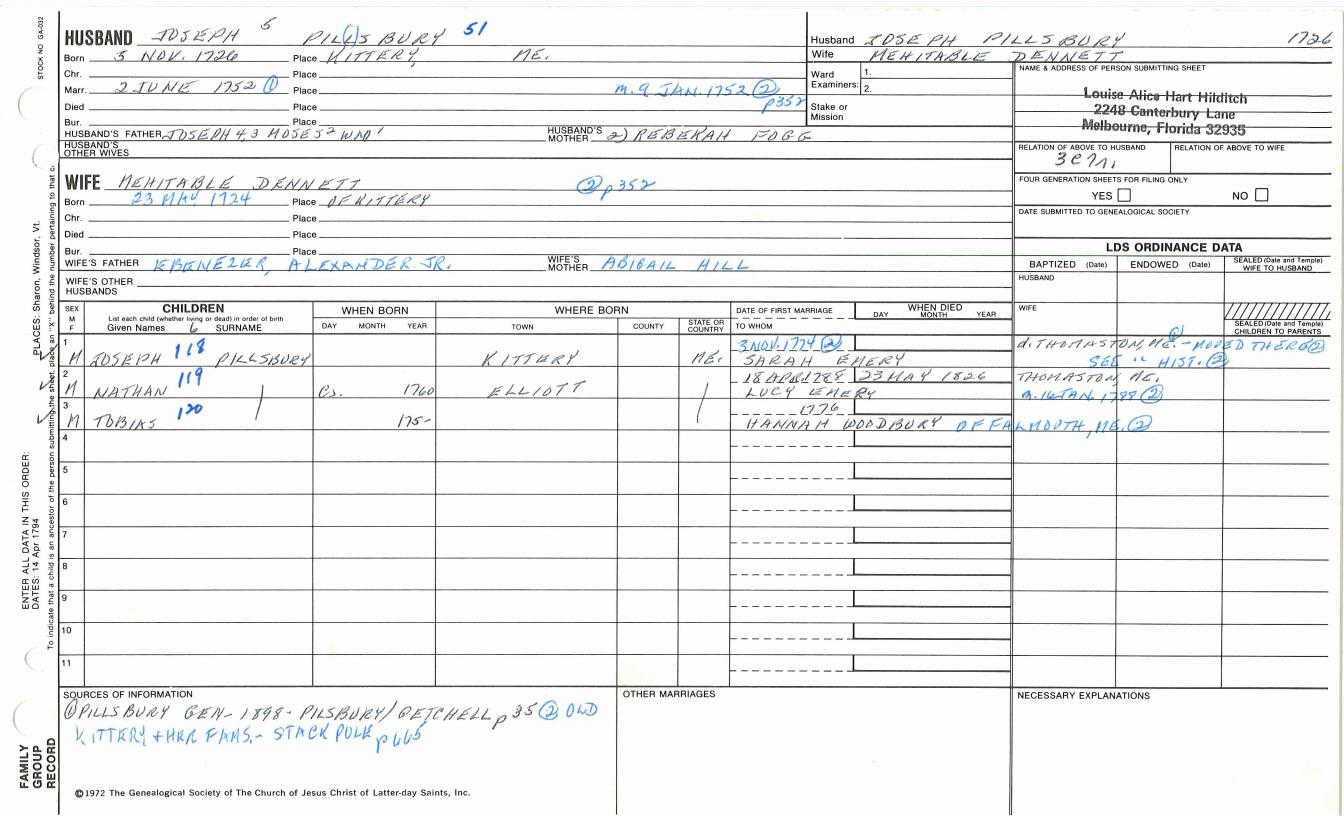 STOCK NO. GA-032
HUSBAND JOSEPH 5 PILLSBURY 51
Born 5 NOV. 1726 Place KITTERY, ME.
Chr. Place
Marr. 2 JUNE 1752 ① Place m. 9 JAN. 1752 ② p352
Died Place
Bur. Place
HUSBAND'S FATHER JOSEPH 4, 3 MOSES 2 WM 1 HUSBAND'S MOTHER 2) REBEKAH FOGG
HUSBAND'S OTHER WIVES
Husband JOSEPH PILLSBURY 1726
Wife MEHITABLE DENNETT
Ward Examiners: 1.
2.
Stake or Mission
NAME & ADDRESS OF PERSON SUBMITTING SHEET
Louise Alice Hart Hilditch
2248 Canterbury Lane
Melbourne, Florida 32935
RELATION OF ABOVE TO HUSBAND RELATION OF ABOVE TO WIFE
FOUR GENERATION SHEETS FOR FILING ONLY
YES NO
DATE SUBMITTED TO GENEALOGICAL SOCIETY
WIFE MEHITABLE DENNETT ② p352
Born 23 MAY 1724 Place OF KITTERY
Chr. Place
Died Place
Bur. Place
WIFE'S FATHER EBENEZER, ALEXANDER JR. WIFE'S MOTHER ABIGAIL HILL
WIFE'S OTHER HUSBANDS
LDS ORDINANCE DATA
BAPTIZED (Date) ENDOWED (Date) SEALED (Date and Temple) WIFE TO HUSBAND
HUSBAND
WIFE
SEALED (Date and Temple) CHILDREN TO PARENTS
SEX M F
CHILDREN
List each child (whether living or dead) in order of birth
Given Names 6 SURNAME
WHEN BORN
DAY MONTH YEAR
WHERE BORN
TOWN COUNTY STATE OR COUNTRY
DATE OF FIRST MARRIAGE
TO WHOM
WHEN DIED
DAY MONTH YEAR
1 M JOSEPH 118 PILLSBURY KITTERY ME. 3 NOV. 1774 ② d. THOMASTON, ME. - MOVED THERE ②
SARAH EMERY SEE " HIST. ②
2 M NATHAN 119 Cs. 1760 ELLIOTT 18 APR 1788 23 MAY 1826 THOMASTON, ME.
LUCY EMERY m. 16 JAN. 1788 ②
3 M TOBIAS 120 175- 1776
HANNAH WOODBURY OF FALMOUTH, ME. ②
4
5
6
7
8
9
10
11
SOURCES OF INFORMATION
① PILLSBURY GEN - 1898 - PILSBURY/GETCHELL p 35 ② OLD
KITTERY + HER FAMS. - STACKPOLE p 665
OTHER MARRIAGES
NECESSARY EXPLANATIONS
©1972 The Genealogical Society of The Church of Jesus Christ of Latter-day Saints, Inc.
FAMILY GROUP RECORD
ENTER ALL DATA IN THIS ORDER:
DATES: 14 Apr 1794
PLACES: Sharon, Windsor, Vt.
To indicate that a child is an ancestor of the person submitting the sheet, place an "X" behind the number pertaining to that c.